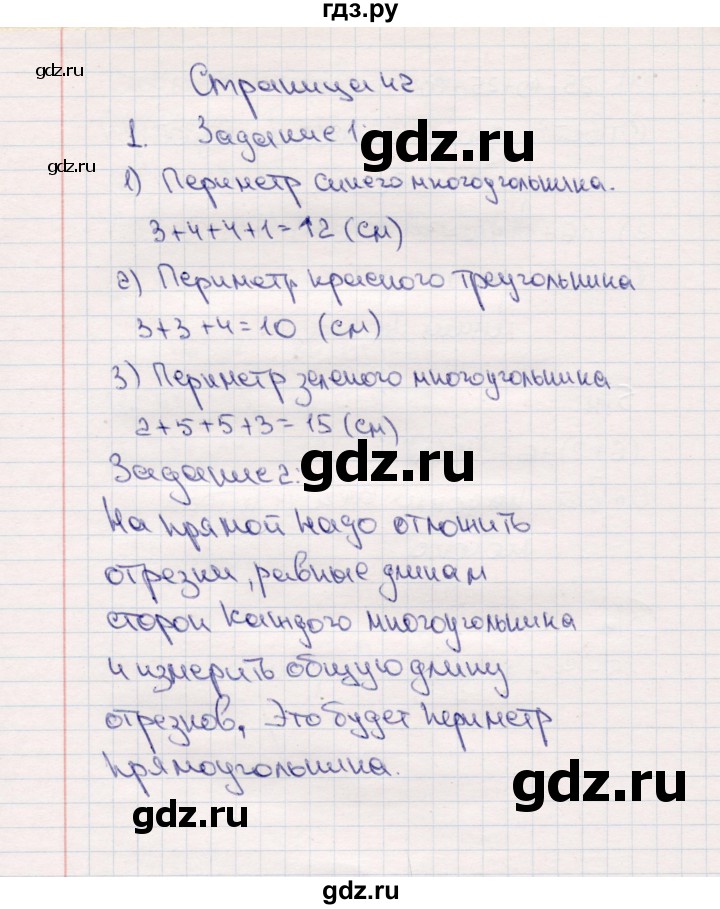 гдз.ру
gdz.ru
Страница 42
gdz.ru
1. Задание 1:
gdz.ru
1) Периметр синего многоугольника.
3+4+4+1=12 (см)
2) Периметр красного треугольника
3+3+4=10 (см)
3) Периметр зеленого многоугольника
2+5+5+3=15 (см)
gdz.ru
Задание 2:
На прямой надо отложить
отрезки, равные длинам
сторон каждого многоугольника
и измерить общую длину
отрезков. Это будет периметр
прямоугольника.
gdz.ru
gdz.ru
gdz.ru